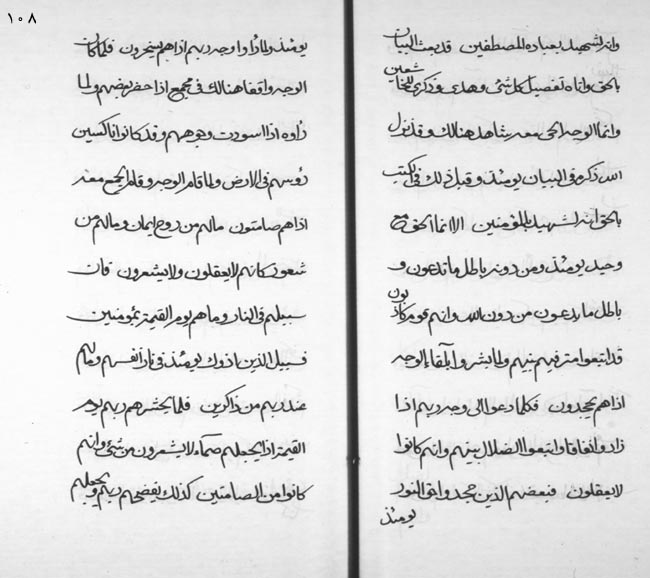 ١٠٨
وانه لشهيد بعباده المصطفين قد بعث البيان
بالحق واتاه تفصيل كل شئ وهدى وذكرى للخاشعين
وانما الوجه الحى معه شاهد هنالك وقد نزل
الله ذكره فى البيان يومئذ وقبل ذلك فى الكتب
بالحق انه لشهيد بالمؤمنين الا انما الحق مع
وحيد يومئذ ومن دونه باطل ما تدعون و
باطل ما يدعون من دون الله وانهم قوم كاذبون
قد اتبعوا مترفيهم بينهم ولما بشروا بلقاء الوجه
اذا هم يجحدون فكلما دعوا الى وجه ربهم اذا
زادوا نفاقا واتبعوا الضلال بينهم وانهم كانوا
لا يعقلون فبعضهم الذين جحدوا نور
يومئذ
يومئذ ولما راوا وجه ربهم اذا هم يسخرون فلما كان
الوجه واقفا هنالك فى مجمع اذا حضر بعضهم ولما
راوه اذا اسودت وجوههم وقد كانوا ناكسين
رؤسهم فى الارض ولما قام الوجه وقام الجمع معه
اذا هم صامتون مالهم من روح ايمان وما لهم من
شعور كانهم لا يعقلون ولا يشعرون فان
سبيلهم فى النار وما هم يوم القيمة بمومنين
فسبيل الذين اذوك يومئذ فى نار انفسهم وما لهم
عند ربهم من ذاكرين فلما يحشرهم ربهم يوم
القيمة اذا يجعلهم صماء لا يشعرون من شئ وانهم
كانوا من الصامتين كذلك يفضحهم ربهم ويجعلهم